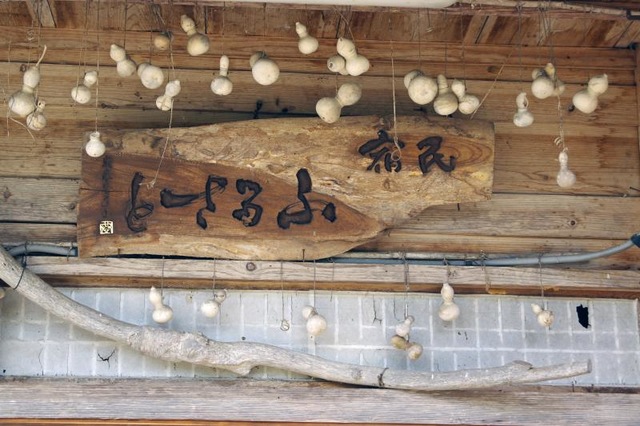 民宿
ふるさと